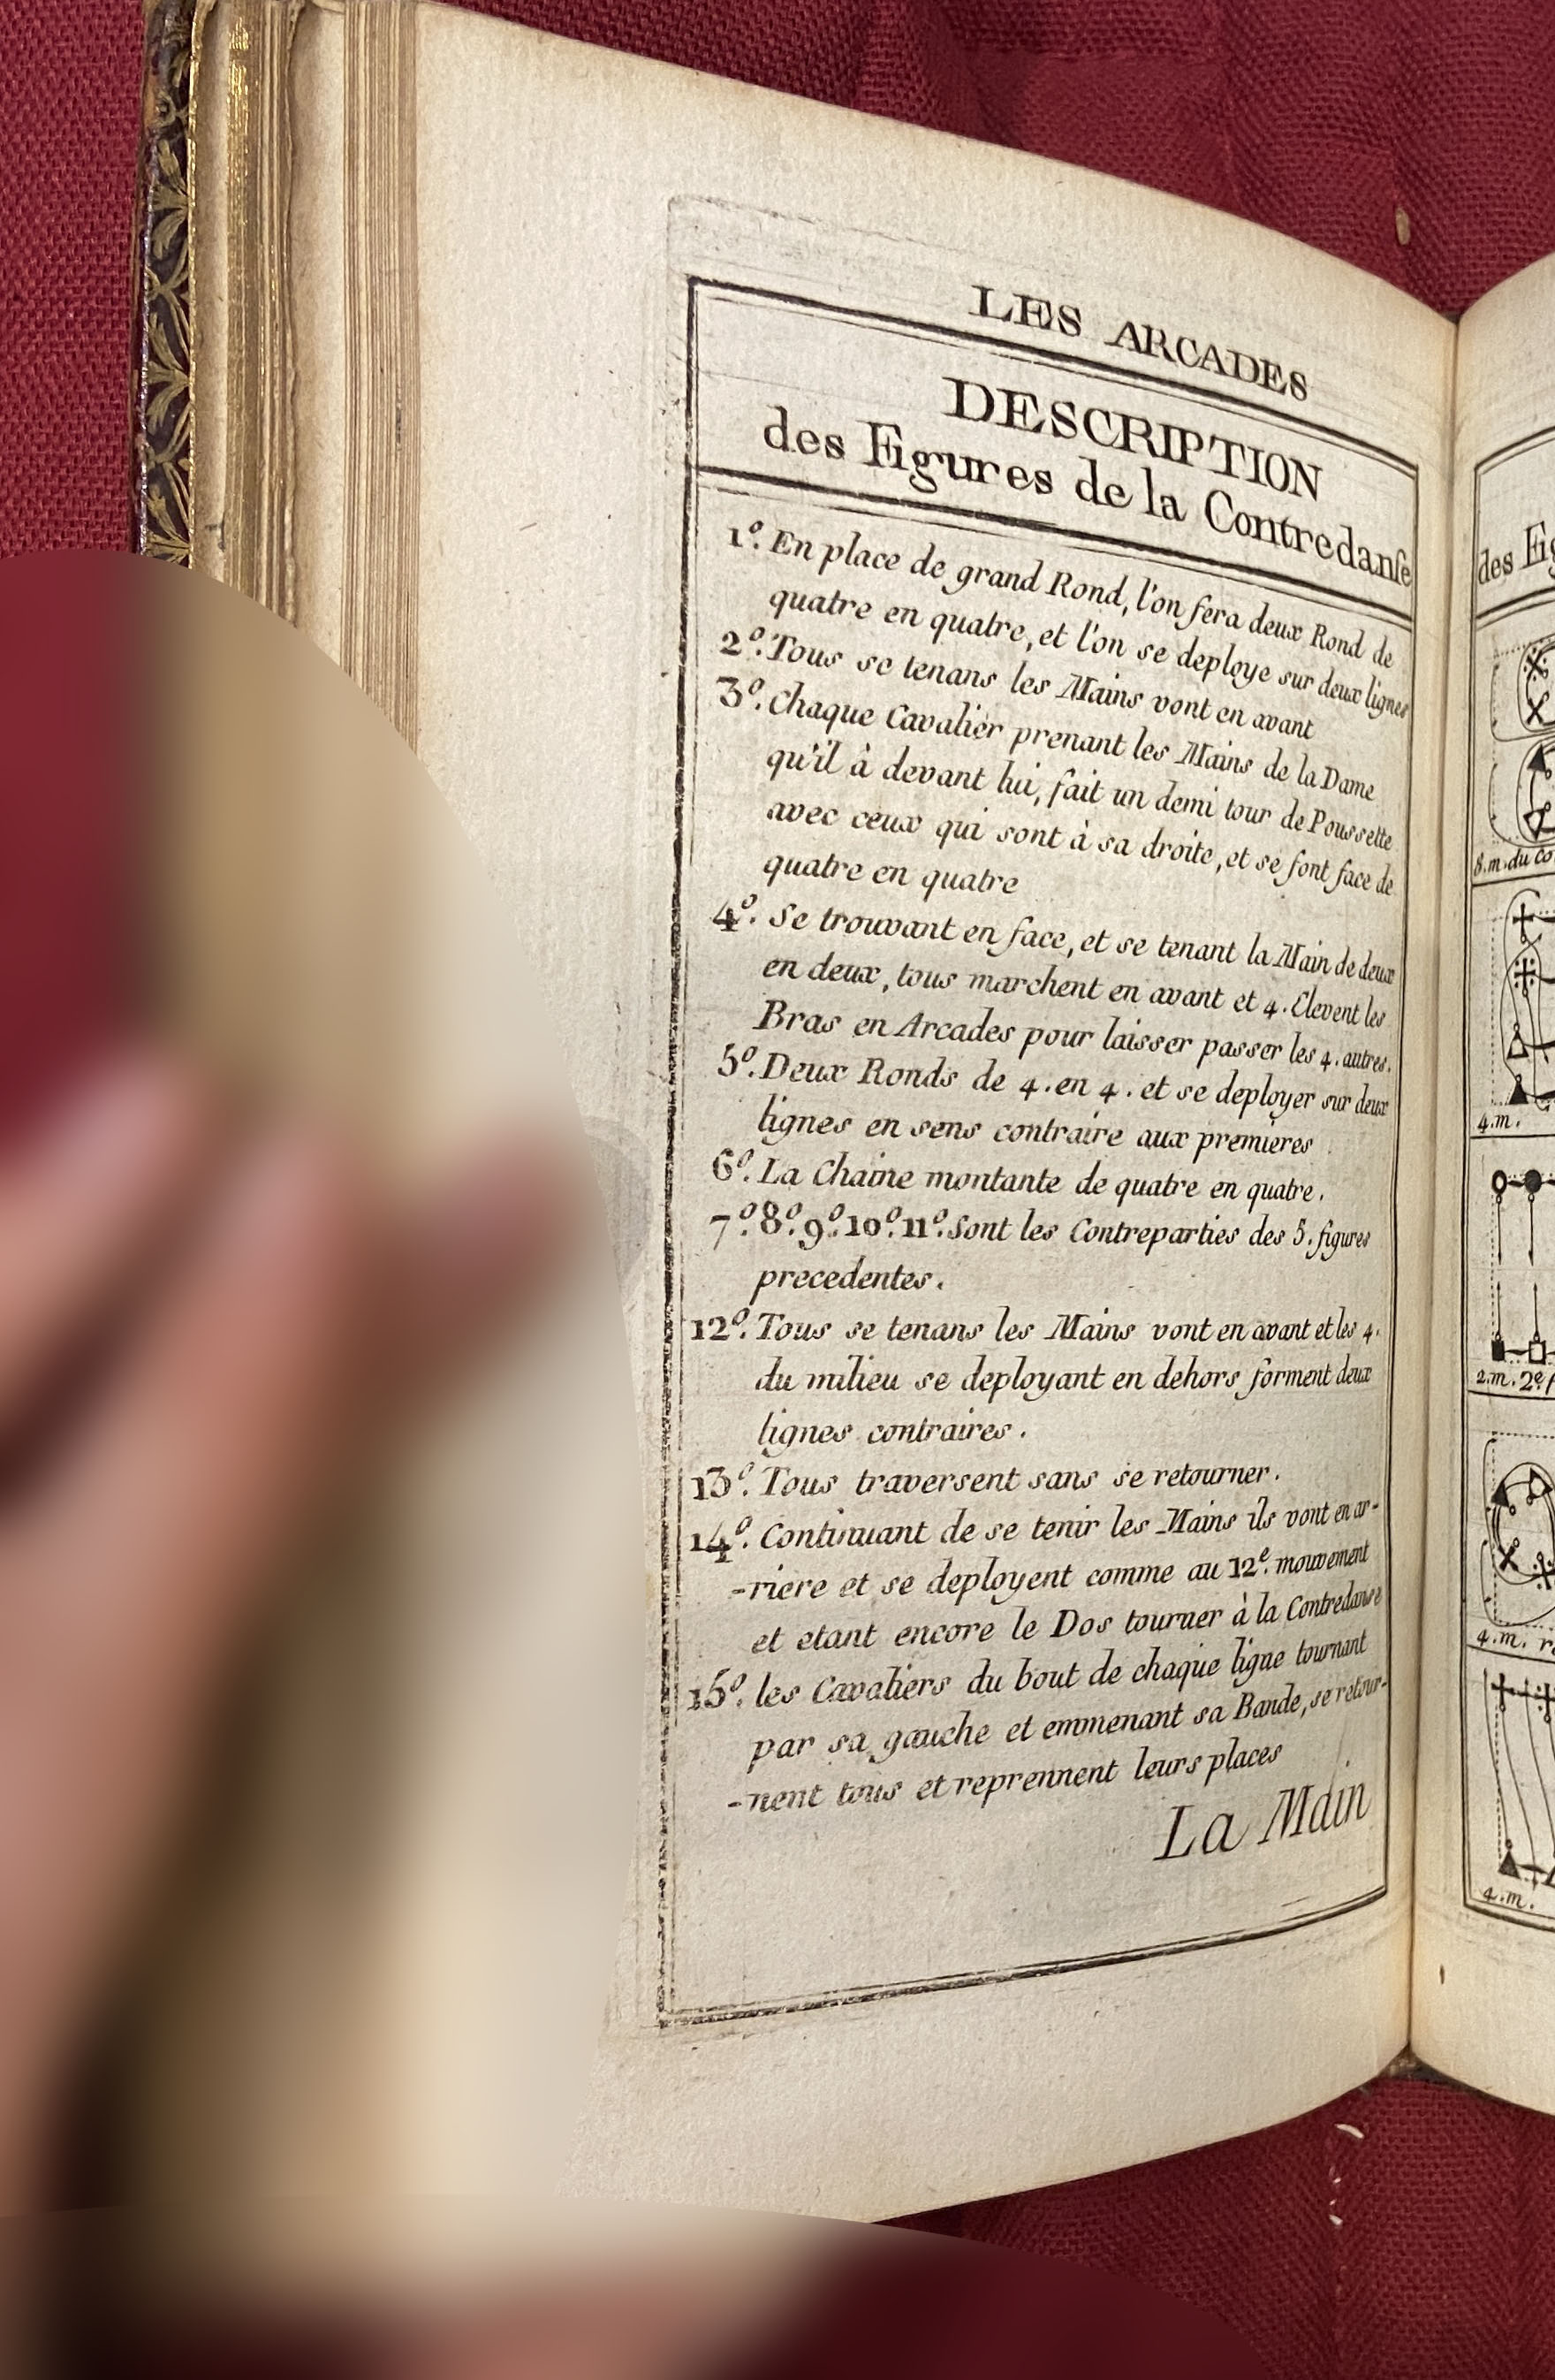 LES ARCADES
DESCRIPTION
des Figures de la Contredanſe
1.º En place de grand Rond, l'on fera deux Rond de
quatre en quatre, et l'on se deploye sur deux lignes
2.º Tous se tenans les Mains vont en avant
3.º Chaque Cavalier prenant les Mains de la Dame
qu'il à devant lui, fait un demi tour de Poussette
avec ceux qui sont à sa droite, et se font face de
quatre en quatre
4.º Se trouvant en face, et se tenant la Main de deux
en deux, tous marchent en avant et 4. Elevent les
Bras en Arcades pour laisser passer les 4. autres.
5.º Deux Ronds de 4. en 4. et se deployer sur deux
lignes en sens contraire aux premieres
6.º La Chaine montante de quatre en quatre.
7.º 8.º 9.º 10.º 11.º Sont les Contreparties des 5. figures
precedentes.
12.º Tous se tenans les Mains vont en avant et les 4.
du milieu se deployant en dehors forment deux
lignes contraires.
13.º Tous traversent sans se retourner.
14.º Continuant de se tenir les Mains ils vont en ar-
-riere et se deployent comme au 12.e mouvement
et etant encore le Dos tourner à la Contredanse
15.º les Cavaliers du bout de chaque ligne tournant
par sa gauche et emmenant sa Bande, se retour-
-nent tous et reprennent leurs places
La Main
des Fig
8.m. du Co
4.m.
2.m. 2.e
4.m.
4.m.